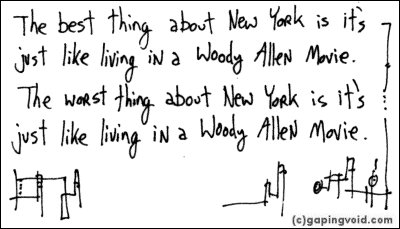 The best thing about New York is it's
just like living in a Woody Allen Movie.
The worst thing about New York is it's
just like living in a Woody Allen Movie.
(c)gapingvoid.com